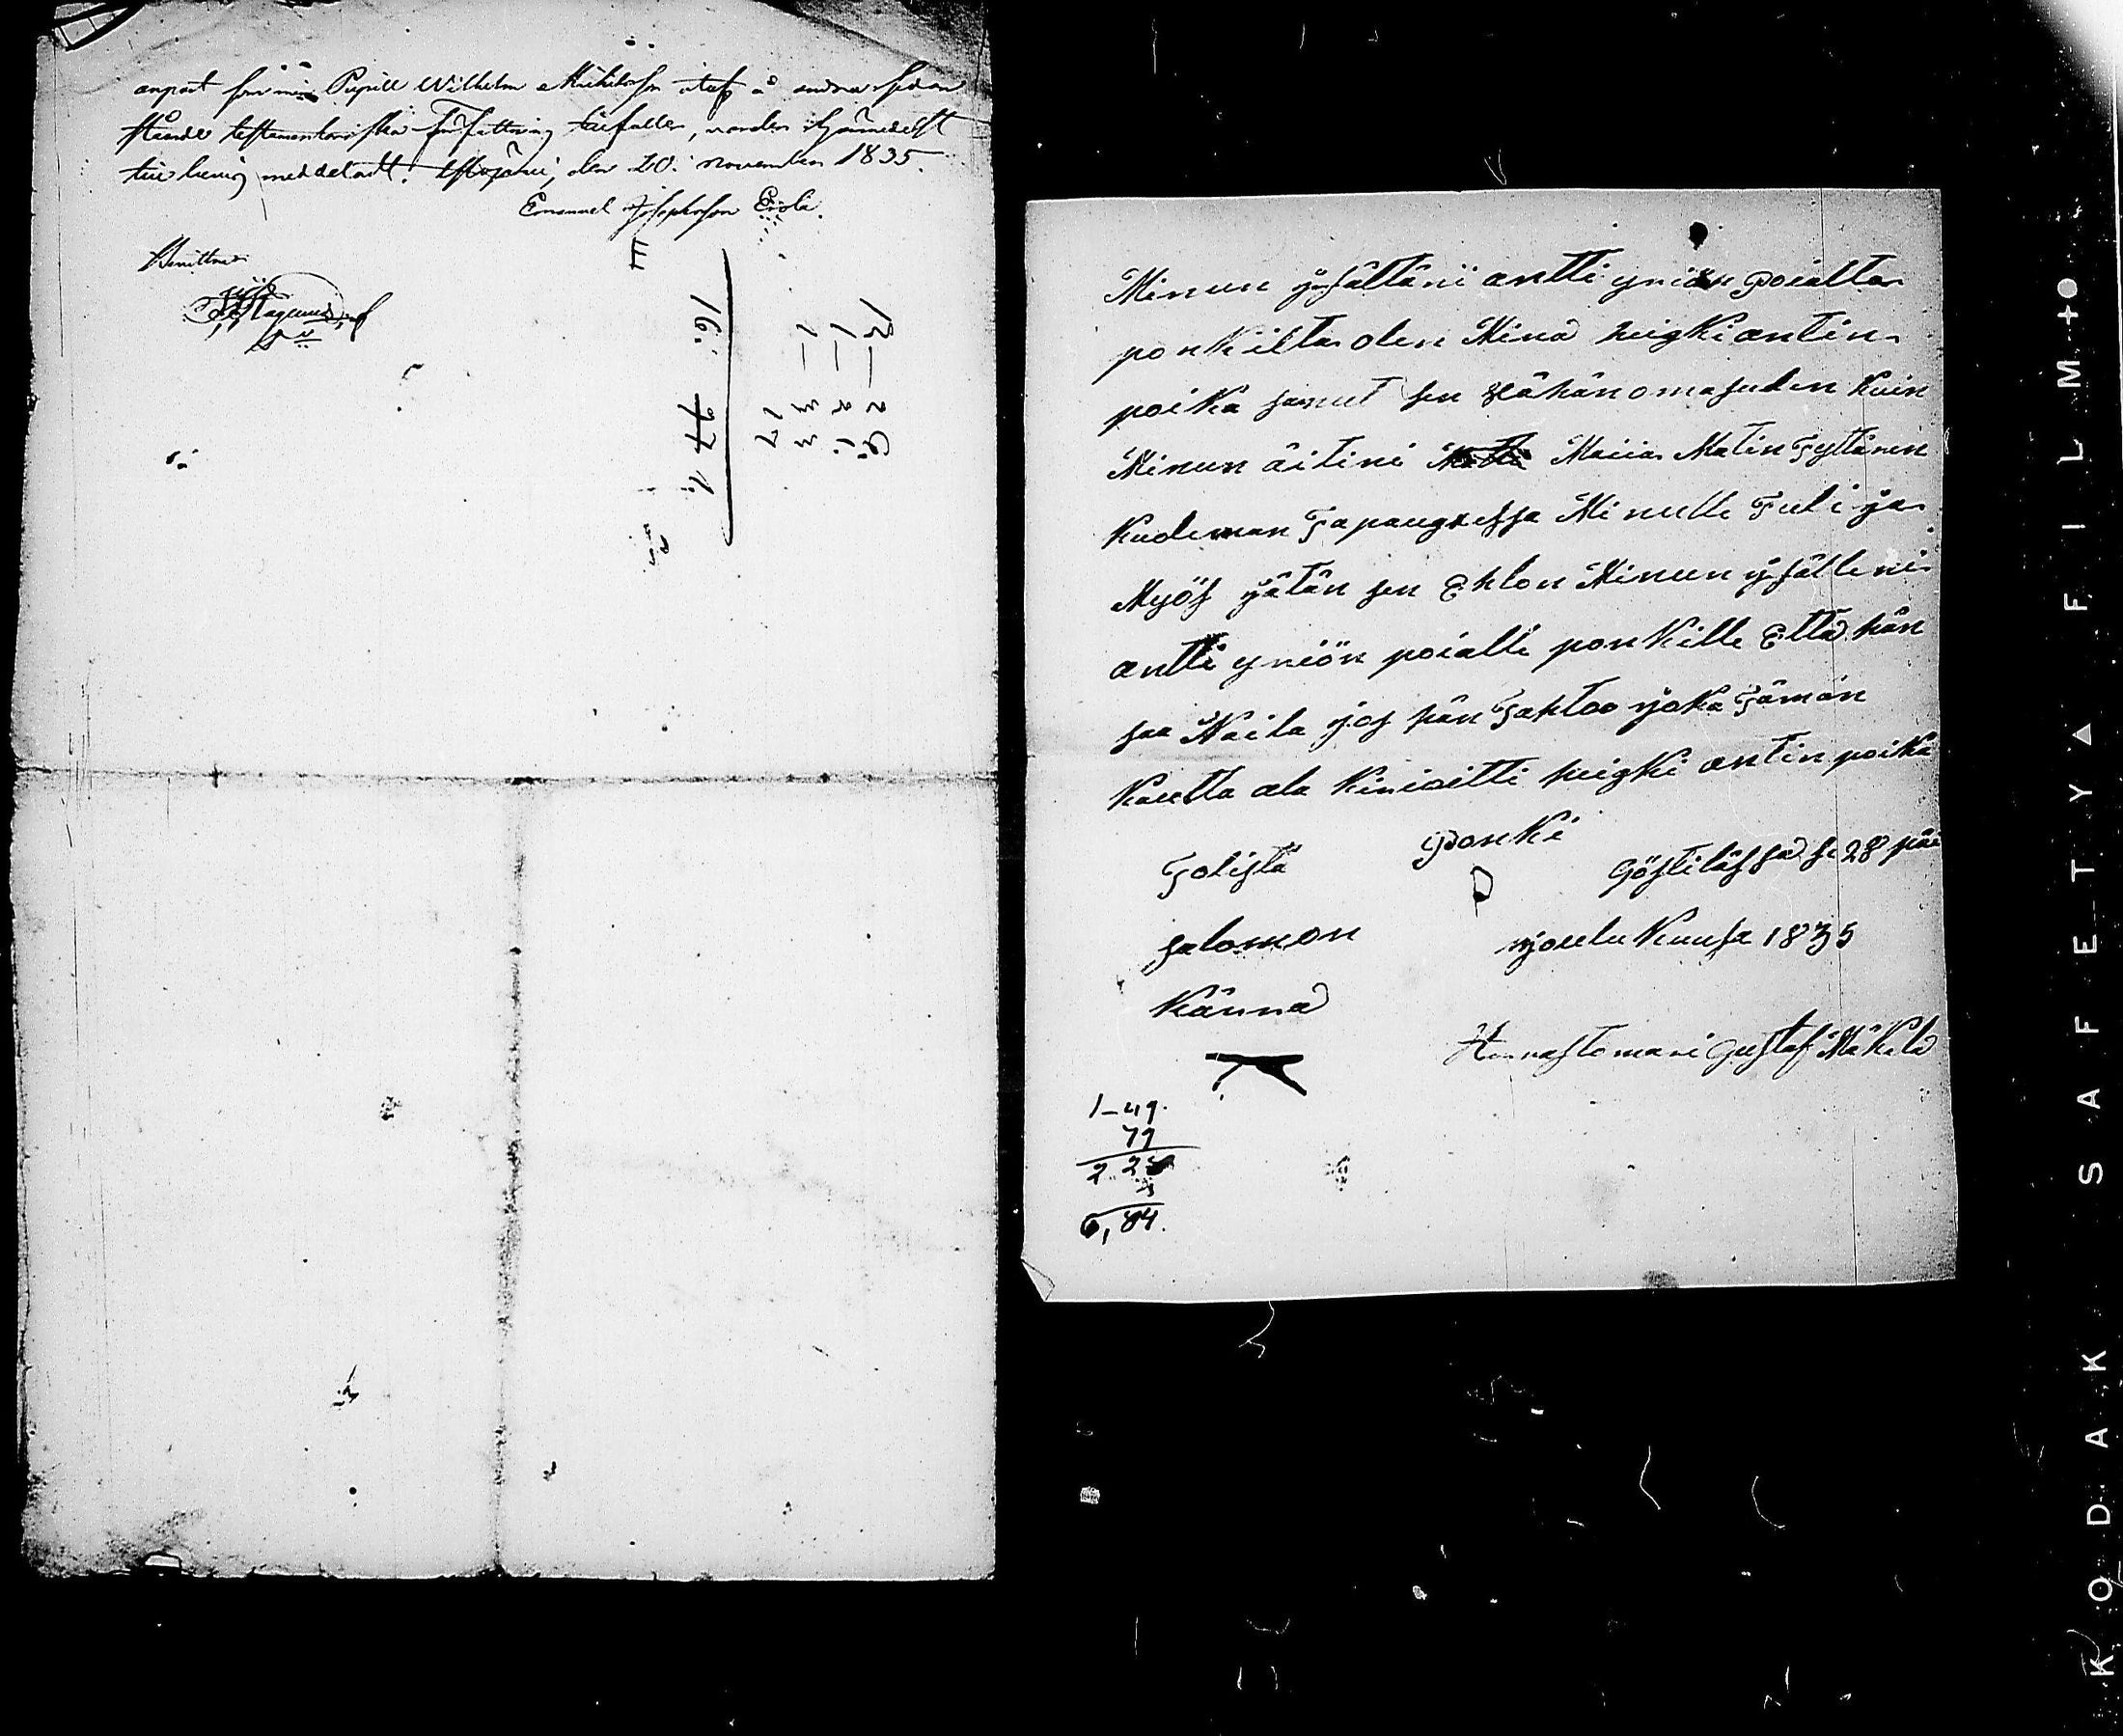 anpart för min Pupill Wilhelm Michelsson utaf å andra sidan
stående testamentariska författning tillfaller, varder härmedelst
till bevis meddeladt. den 20. november 1835.
Emanuel Josephsson Erola.
Bevittnar
13 — 2 6
1 — 2 1
1 — 3 3
1 7
16.
Minun ysältäni antti yriön poialta
ponkilta olen Minä heigki antin
poika sanut sen vähän omasuden kuin
Minun äitini Maiia Matin Tyttären
kuoleman Tapaugxessa Minulle Tuli ja
Myös jätän sen Ehlon Minun ysälleni
antti yriön poialle ponkille Että hän
saa Naita jos hän Tahtoo joka Tämän
kautta ala kiriaitti heigki antin poika
ponki
Tolista
Göstilässä se 28 päi
salomon
joulu Kuusa 1835
Kännä
Gustaf Mäkelä
1-49.
79
2 28
3
6,84.
KODAK SAFETY FILM